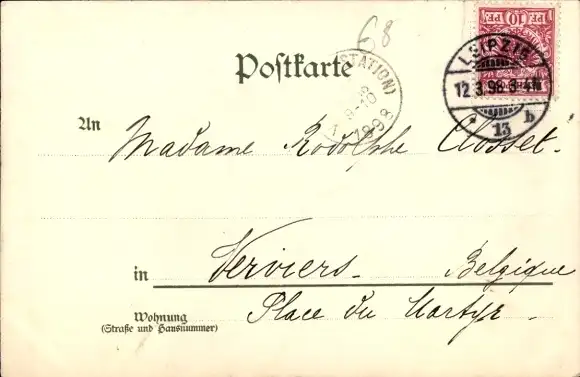 68
10 PF. PF. 10
Postkarte
(STATION)
8-10
1898
LEIPZIG
12 3.98
13 b
An Madame Rodolphe Closset.
in Verviers. Belgique
Wohnung Place du Martyr.
(Straße und Hausnummer)